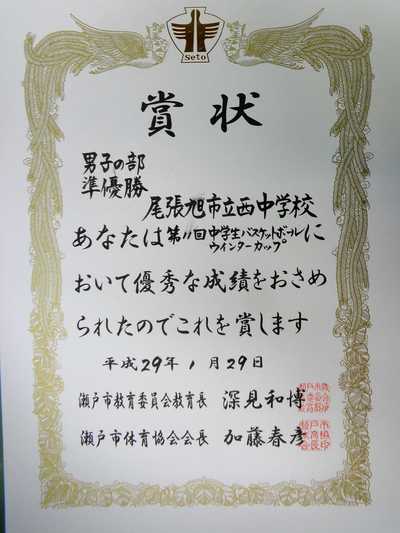 Seto
賞状
男子の部
準優勝
尾張旭市立西中学校
あなたは第11回中学生バスケットボールウインターカップに
おいて優秀な成績をおさめ
られたのでこれを賞します
平成29年1月29日
瀬戸市教育委員会教育長 深見和博
瀬戸市体育協会会長 加藤春彦